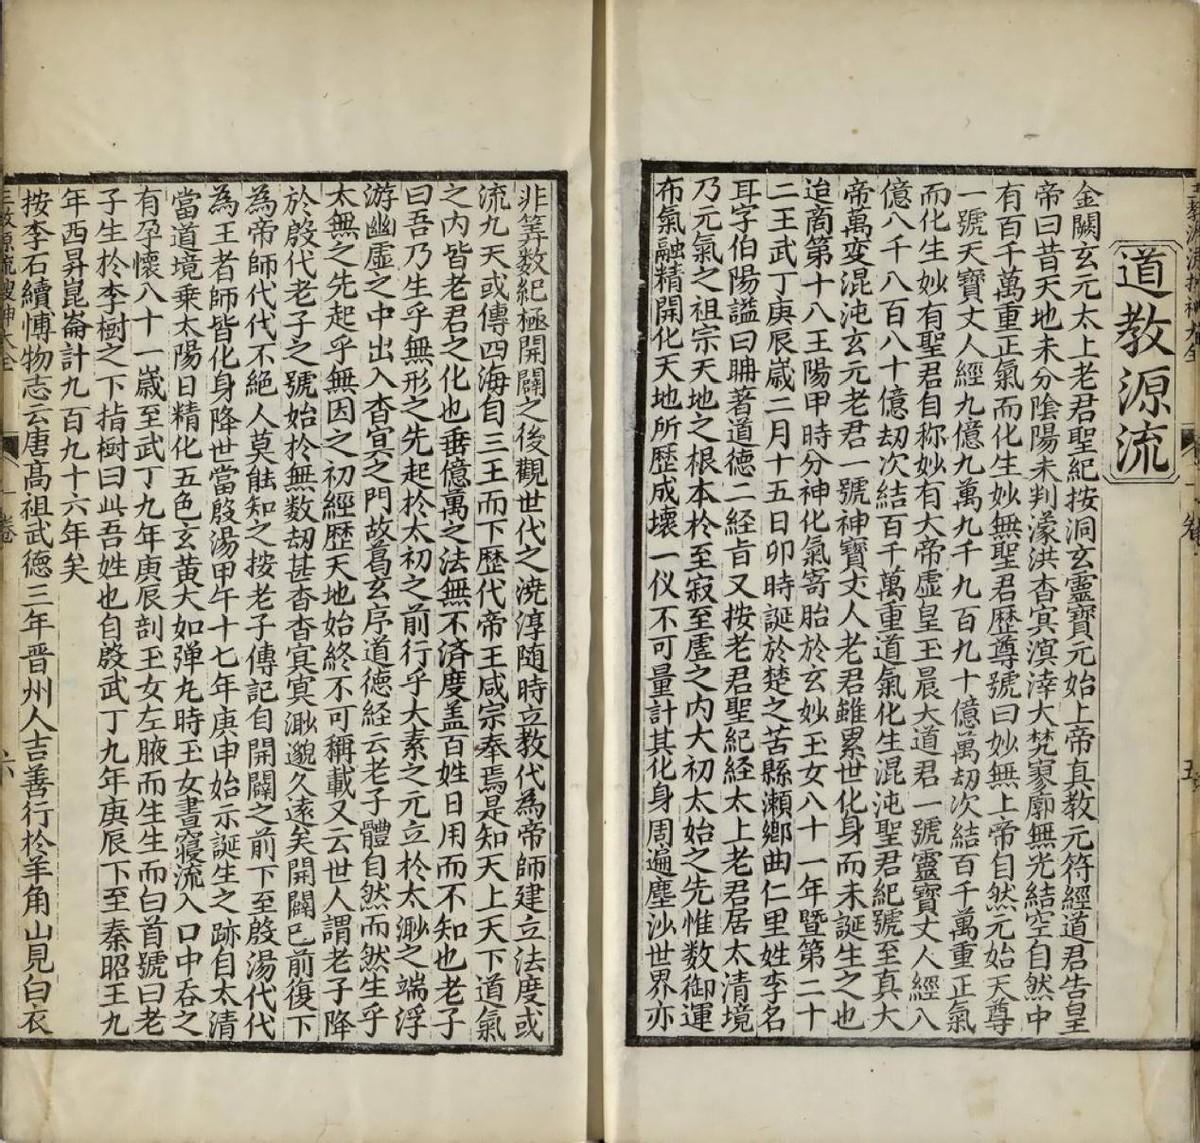 道教源流
金闕玄元太上老君聖紀按洞玄靈寶元始上帝真教元符經道君告皇
帝曰昔天地未分陰陽未判濛洪杳冥溟涬大梵寥廓無光結空自然中
有百千萬重正氣而化生妙無聖君歷尊號曰妙無上帝自然元始天尊
一號天寶丈人經九億九萬九千九百九十億萬刼次結百千萬重正氣
而化生妙有聖君自称妙有大帝虛皇玉晨大道君一號靈寶丈人經八
億八千八百八十億刼次結百千萬重道氣化生混沌聖君紀號至真大
帝萬変混沌玄元老君一號神寶丈人老君雖累世化身而未誕生之也
迨商第十八王陽甲時分神化氣寄胎於玄妙玉女八十一年暨第二十
二王武丁庚辰歲二月十五日卯時誕於楚之苦縣瀬鄉曲仁里姓李名
耳字伯陽謚曰聃著道德二経旨又按老君聖紀経太上老君居太清境
乃元氣之祖宗天地之根本於至寂至虛之内大初太始之先惟数御運
布氣融精開化天地所歷成壞一仪不可量計其化身周遍塵沙世界亦
非筭数紀極開闢之後觀世代之澆淳随時立教代為帝師建立法度或
流九天或傳四海自三王而下歷代帝王咸宗奉焉是知天上天下道氣
之内皆老君之化也垂億萬之法無不済度盖百姓日用而不知也老子
曰吾乃生乎無形之先起於太初之前行乎大素之元立於太渺之端浮
游幽虛之中出入杳冥之門故葛玄序道德経云老子體自然而然生乎
太無之先起乎無因之初經歷天地始終不可稱載又云世人謂老子降
於殷代老子之號始於無数刼甚杳杳冥冥渺邈久遠矣開闢已前復下
為帝師代代不絕人莫能知之按老子傳記自開闢之前下至殷湯代代
為王者師皆化身降世當殷湯甲午十七年庚申始示誕生之跡自太清
當道境乗太陽日精化五色玄黄大如弹丸時玉女晝寢流入口中吞之
有孕懷八十一歲至武丁九年庚辰剖玉女左腋而生生而白首號曰老
子生於李樹之下指樹曰此吾姓也自殷武丁九年庚辰下至秦昭王九
年西昇崑崙計九百九十六年矣
按李石續愽物志云唐髙祖武德三年晋州人吉善行於羊角山見白衣
三教源流搜神大全
一卷
六